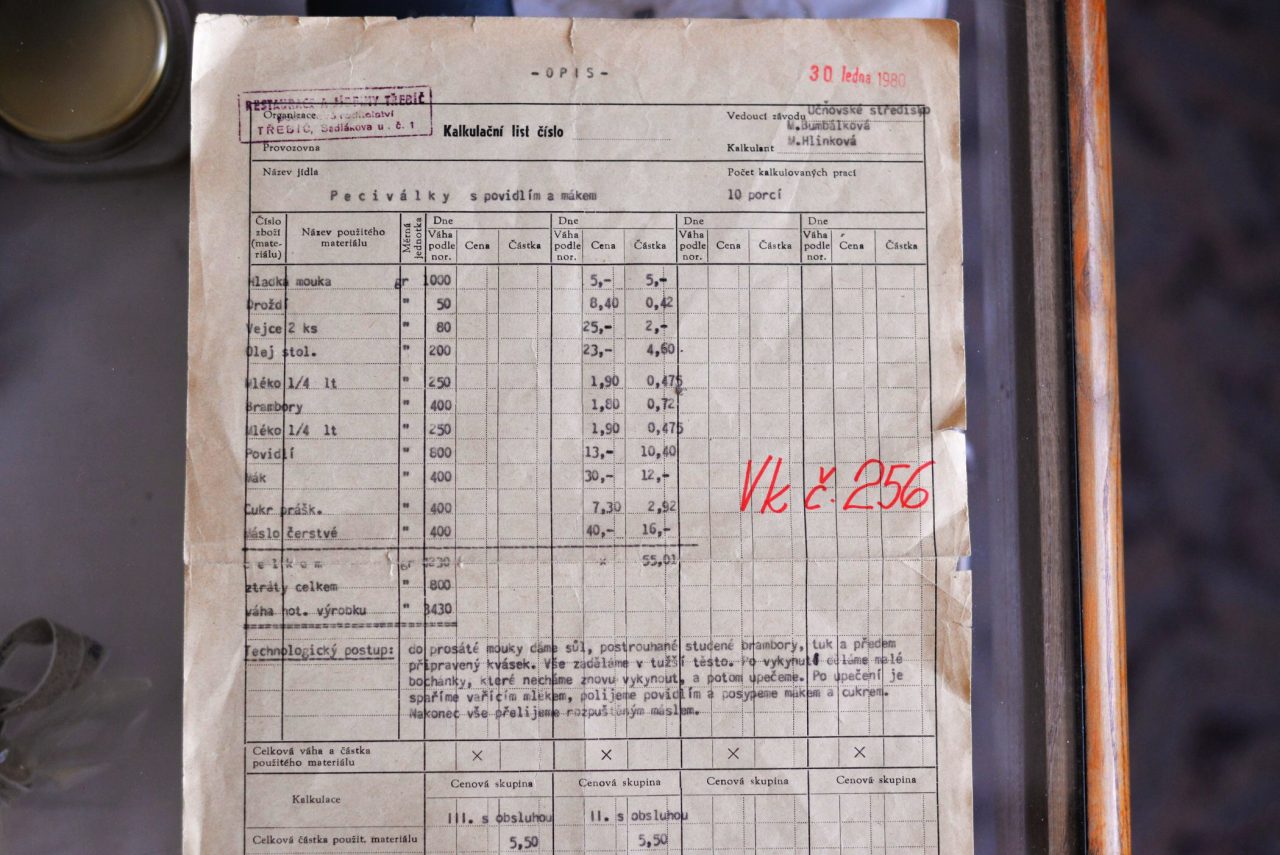 -OPIS-
30 ledna 1980
RESTAURACE A JÍDELNY TŘEBÍČ
TŘEBÍČ, Sadlákova u. č. 1
Organizace
Provozovna
Kalkulační list číslo
Vedoucí závodu Učňovské středisko
M.Bumbálková
Kalkulant M.Hlinková
Název jídla
Počet kalkulovaných prací
Peciválky s povidlím a mákem
10 porcí
Číslo zboží (mate- riálu) Název použitého materiálu Měrná jednotka Dne Váha podle nor. Cena Částka Dne Váha podle nor. Cena Částka Dne Váha podle nor. Cena Částka Dne Váha podle nor. Cena Částka
Hladká mouka gr 1000 5,- 5,-
Droždí " 50 8,40 0,42
Vejce 2 ks " 80 25,- 2,-
Olej stol. " 200 23,- 4,60
Mléko 1/4 lt " 250 1,90 0,475
Brambory " 400 1,80 0,72
Mléko 1/4 lt " 250 1,90 0,475
Povidlí " 800 13,- 10,40
Mák " 400 30,- 12,-
Vk č. 256
Cukr prášk. " 400 7,30 2,92
Máslo čerstvé " 400 40,- 16,-
celkem gr 4230 x 55,01
ztráty celkem " 800
váha hot. výrobku " 3430
Technologický postup: do prosáté mouky dáme sůl, postrouhané studené brambory, tuk a předem
připravený kvásek. Vše zaděláme v tužší těsto. Po vykynutí děláme malé
bochánky, které necháme znovu vykynout, a potom upečeme. Po upečení je
spaříme vařícím mlékem, polijeme povidlím a posypeme mákem a cukrem.
Nakonec vše přelijeme rozpuštěným máslem.
Celková váha a částka
použitého materiálu × × × ×
Kalkulace
Cenová skupina Cenová skupina Cenová skupina Cenová skupina
III. s obsluhou II. s obsluhou
Celková částka použit. materiálu 5,50 5,50